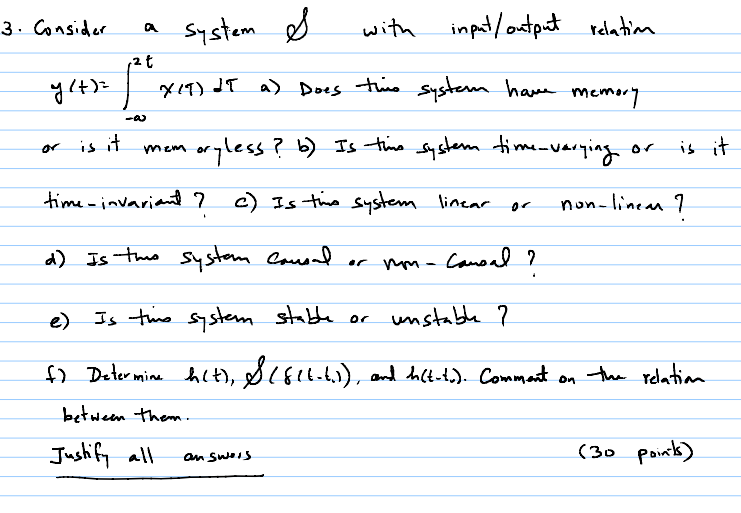 3. Consider a system S with input/output relation
y(t)= ∫_{-∞}^{2t} x(τ) dτ a) Does this system have memory
or is it memoryless? b) Is this system time-varying or is it
time-invariant? c) Is this system linear or non-linear?
d) Is this system causal or non-causal?
e) Is this system stable or unstable?
f) Determine h(t), S(δ(t-t₁)), and h(t-t₁). Comment on the relation
between them.
Justify all answers (30 points)